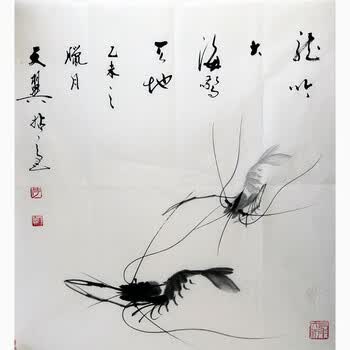 龍吟
大
海驚
天地
乙未之
臘月
天翼